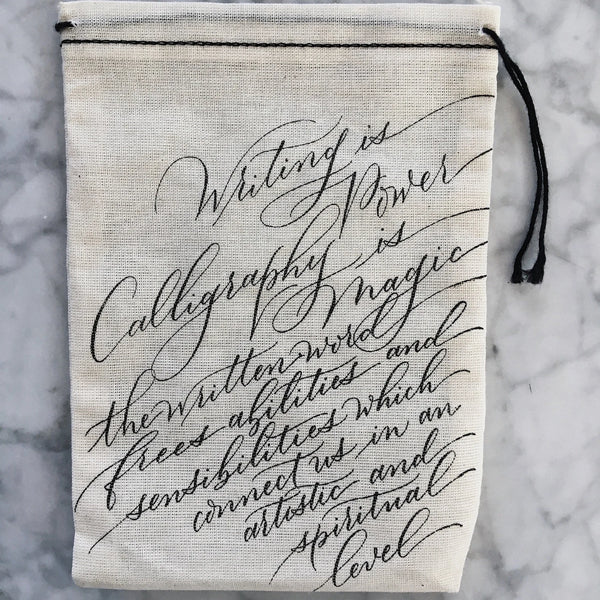 Writing is
Power
Calligraphy is
magic
the written word
frees abilities and
sensibilities which
connect us in an
artistic and
spiritual
level